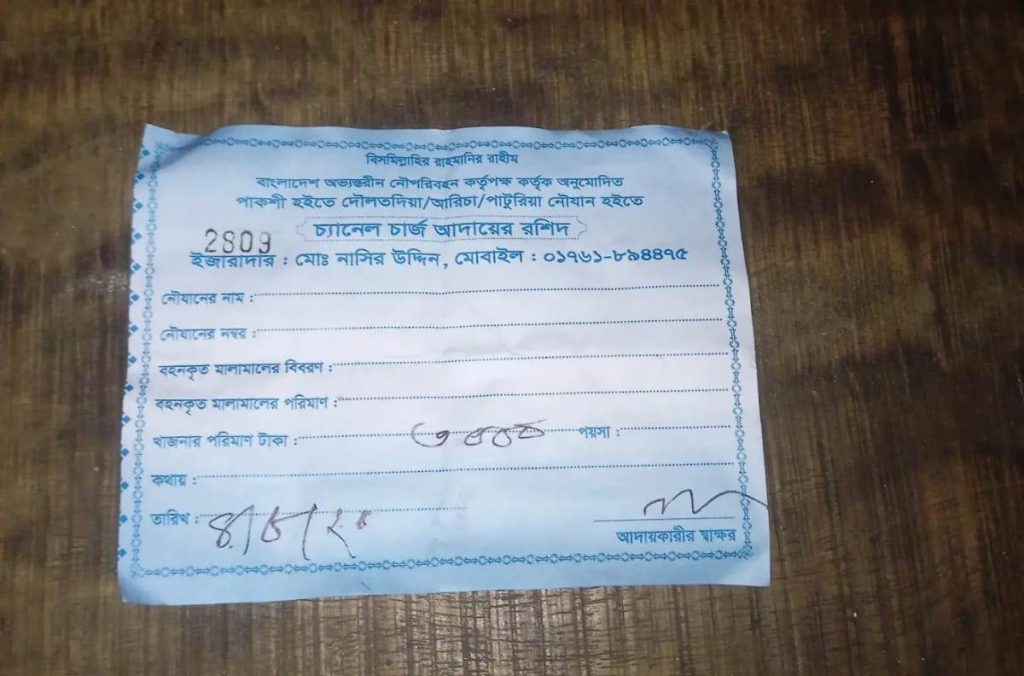 বিসমিল্লাহির রাহমানির রাহীম
বাংলাদেশ অভ্যন্তরীন নৌপরিবহন কর্তৃপক্ষ কর্তৃক অনুমোদিত
পাকশী হইতে দৌলতদিয়া/আরিচা/পাটুরিয়া নৌযান হইতে
চ্যানেল চার্জ আদায়ের রশিদ
2809
ইজারাদার : মোঃ নাসির উদ্দিন, মোবাইল : ০১৭৬১-৮৯৪৪৭৫
নৌযানের নাম :
নৌযানের নম্বর :
বহনকৃত মালামালের বিবরণ :
বহনকৃত মালামালের পরিমাণ :
খাজনার পরিমাণ টাকা : ৩০০০ পয়সা :
কথায় :
তারিখ :
আদায়কারীর স্বাক্ষর